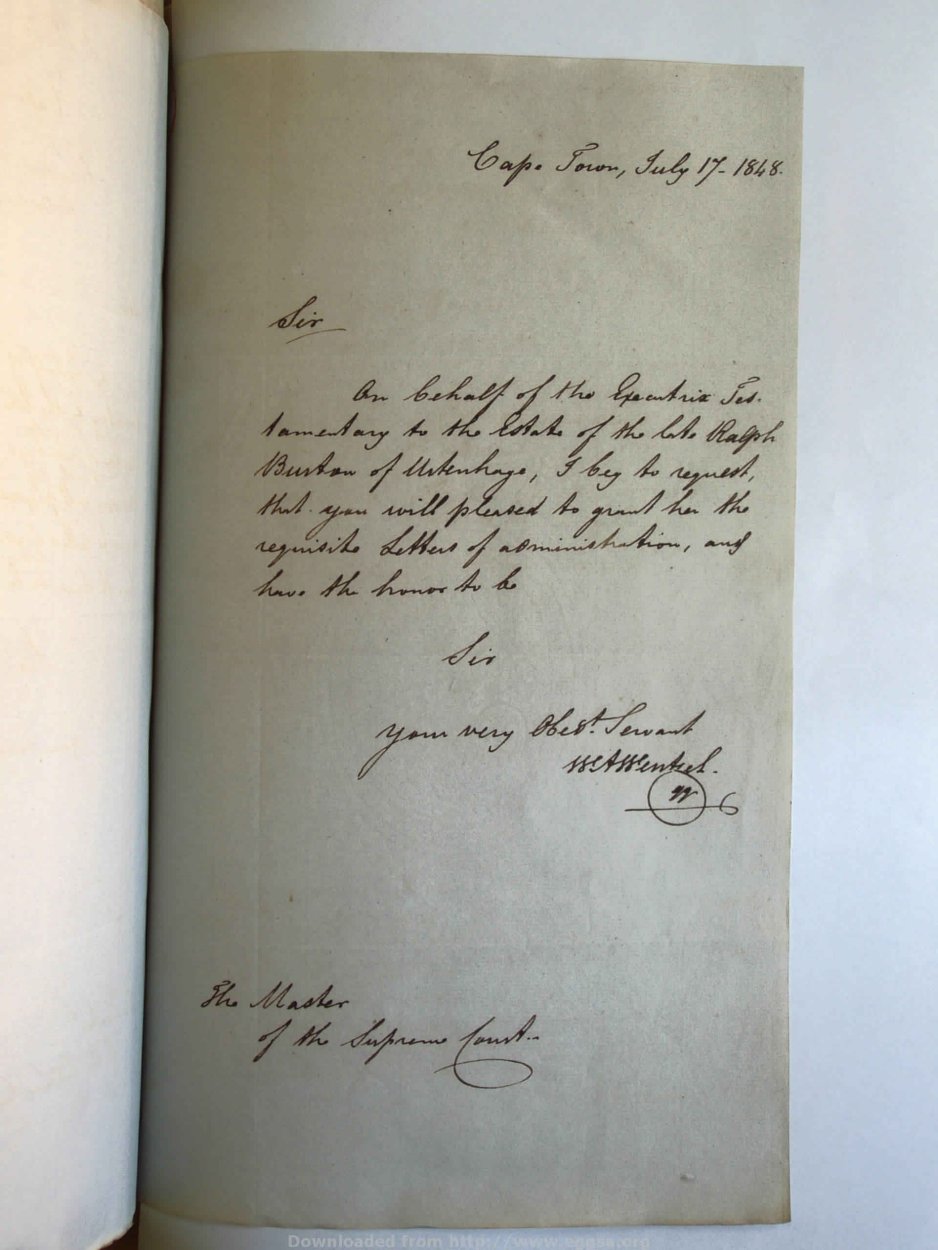 Cape Town, July 17- 1848.
Sir
On behalf of the Executrix Tes-
tamentary to the Estate of the late Ralph
Burton of Uitenhage, I beg to request,
that you will pleased to grant her the
requisite Letters of administration, and
have the honor to be
Sir
Your very Obedt. Servant
W A Wentzel.
W
The Master
of the Supreme Court.
Downloaded from http://www.eggsa.org